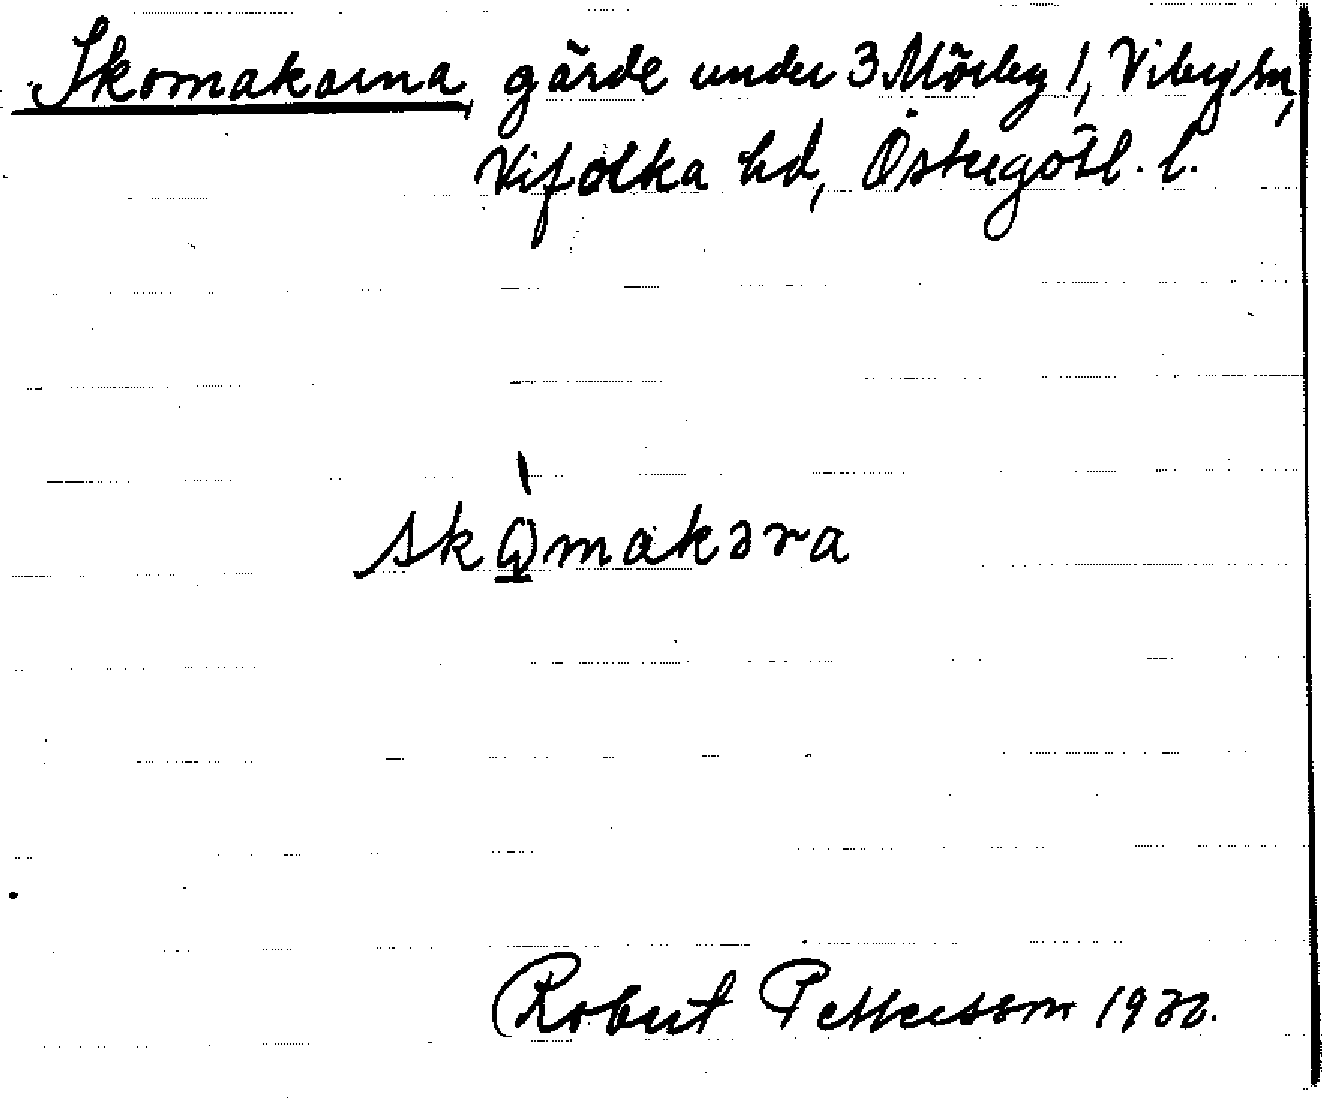 Skomakarna, gärde under 3 Mörby 1, Viby sn,
Vifolka hd, Östergötl. l.
skǫ̀makəra
Robert Pettersson 1932.